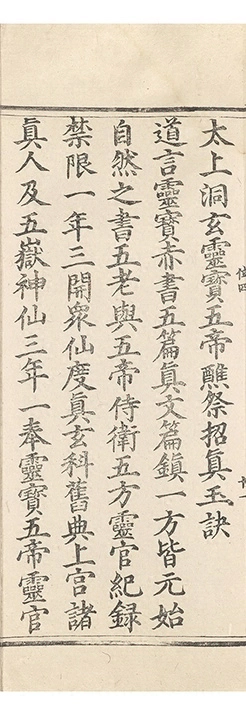 太上洞玄靈寶五帝醮祭招眞玉訣
道言靈寶赤書五篇眞文篇鎭一方皆元始
自然之書五老與五帝侍衛五方靈官紀錄
禁限一年三開衆仙度眞玄科舊典上宮諸
眞人及五嶽神仙三年一奉靈寶五帝靈官